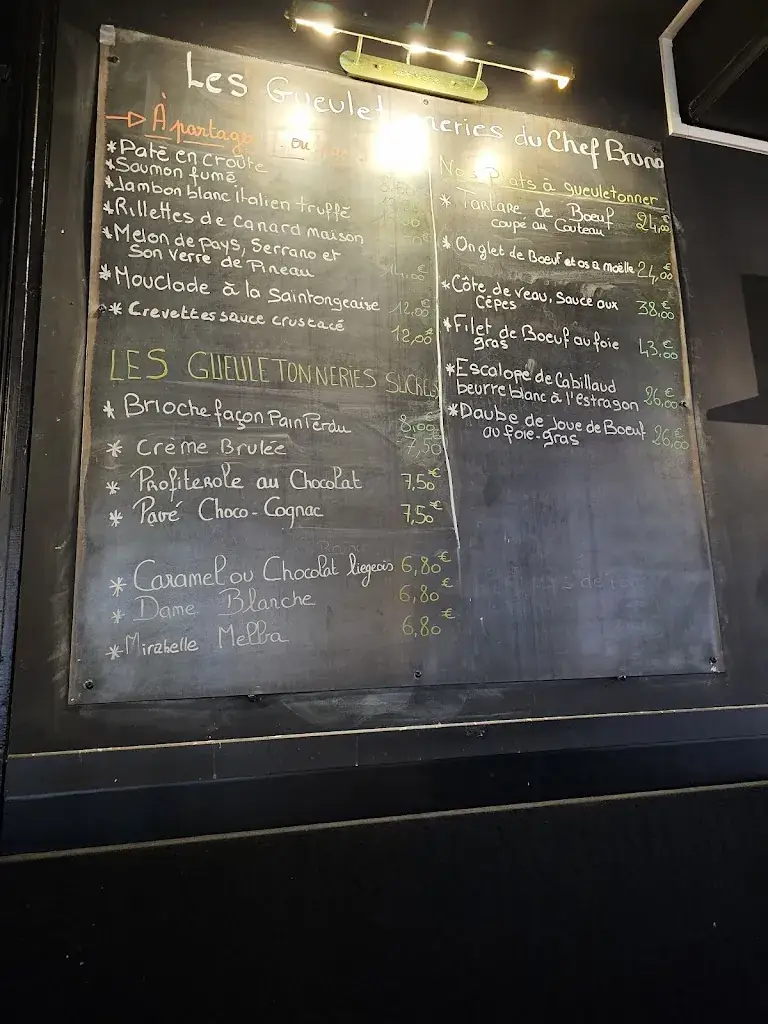 Les Gueuletonneries du Chef Bruno
À partager ou
* Paté en croûte
* Saumon fumé
* Jambon blanc italien truffé
* Rillettes de canard maison
* Melon de pays, Serrano et
son verre de Pineau 14,00€
* Mouclade à la Saintongeaise 12,00€
* Crevettes sauce crustacé 12,00€
LES GUEULETONNERIES SUCRÉES
* Brioche façon Pain Perdu 8,00
* Crème Brulée 7,50
* Profiterole au Chocolat 7,50€
* Pavé Choco-Cognac 7,50€
* Caramel ou Chocolat liegeois 6,80€
* Dame Blanche 6,80€
* Mirabelle Melba 6,80€
Nos Plats à gueuletonner
* Tartare de Boeuf 24,00€
coupé au Couteau
* Onglet de Boeuf et os a moëlle 24,00€
* Côte de veau, sauce aux 38,00€
cèpes
* Filet de Boeuf au foie 43,00€
gras
* Escalope de Cabillaud
beurre blanc à l'estragon 26,00€
* Daube de Joue de Boeuf 26,00€
au foie-gras